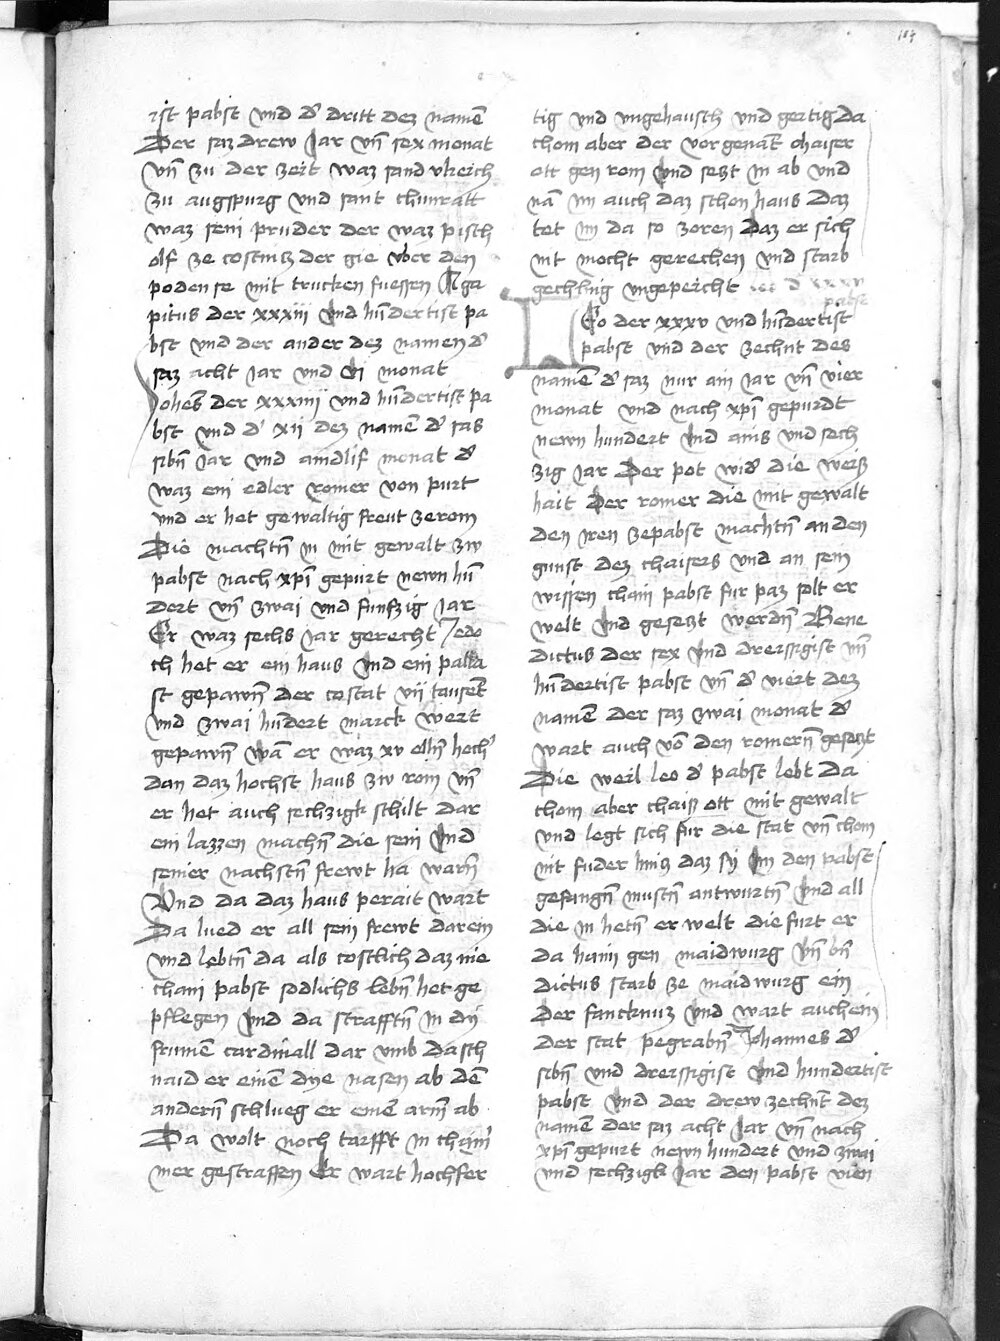 184
ist pabst vnd d' dritt dez namē
Der saz drew Jar vn̄ sex monat
vn̄ zu der zeit waz sand vlreich
zu augspurg vnd sant chunratt
waz sein pruder der waz pisch
olf ze costnitz der gie vber den
poden se mit trucken fuessen Aga
pitus der xxxiij vnd hūdertist pa
bst vnd der ander dez namen d'
saz acht Jar vnd vj monat
Johēs der xxxiiij vnd hūdertist pa
bst vnd d' xij dez namē d' sas
sibn̄ Jar vnd aindlif monat d'
waz ein edler romer von purt
vnd er het gewaltig freut zerom
Die machtn̄ in mit gewalt zw
pabst nach xp̄i gepurt newn hū
dert vn̄ zwai vnd funfzig Jar
Er waz sechs Jar gerecht Jedo
ch het er ein haus vnd ein palla
st gepawn̄ der costat vij tausēt
vnd zwai hūdert marck wert
gepawn̄ wā er waz xv elln̄ hoch'
dan daz hochst haus zw rom vn̄
er het auch sechzigk schilt dar
ein lazzen machn̄ die sein vnd
seiner nachstn̄ frewt ha warn̄
Vnd da daz haus perait wart
Da lued er all sein frewt darein
vnd lebtn̄ da als costlich daz nie
chain pabst sodlichs lebn̄ het ge
pflegen vnd da strafftn̄ in dy
frumē cardinall dar vmb da sch
naid er einē dye nasen ab dē
andern̄ schlueg er einē arm̄ ab
Da wolt noch tarfft in chain̄
mer gestraffen Er wart hochfer
tig vnd vngehausch vnd gertig da
chom aber der vorgenāt chaiser
ott gen rom vnd sezt in ab vnd
nā im auch daz schon haus Daz
tet im da so zoren Daz er sich
nit mocht gerechen vnd starb
gechling vngepeicht
LEo der xxxv vnd hūdertist
pabst vnd der zechnt des
namē d' saz nur ain Jar vn̄ vier
monat vnd nach xp̄i gepurdt
newn hundert vnd ains vnd sech
zig Jar Der pot wid' die weiß
hait Der romer die mit gewalt
den iren zepabst machtn̄ an den
gunst dez chaisers vnd an sein
wissen chain pabst fur paz solt er
welt vnd gesetzt werdn̄ Bene
dictus der sex vnd dreissigist vn̄
hūdertist pabst vn̄ d' viert dez
namē der saz zwai monat d'
wart auch vō den romern̄ gesetzt
Die weil leo d' pabst lebt Da
chom aber chaiß ott mit gewalt
vnd legt sich fur die stat vn̄ chom
nit fuder hinq daz sy im den pabst
gefangn̄ mustn̄ antwurtn̄ vnd all
die in hetn̄ erwelt die furt er
da hain gen maidwurg vn̄ bn̄
dictus starb ze maidwurg ein
der fancknuz vnd wart auch ein
der stat pegrabn̄ Johannes d'
sibn̄ vnd dreissigist vnd hundertist
pabst vnd der drewzechnt dez
namē der saz acht Jar vn̄ nach
xp̄i gepurt newn hundert vnd zwai
vnd sechzigk Jar den pabst vien